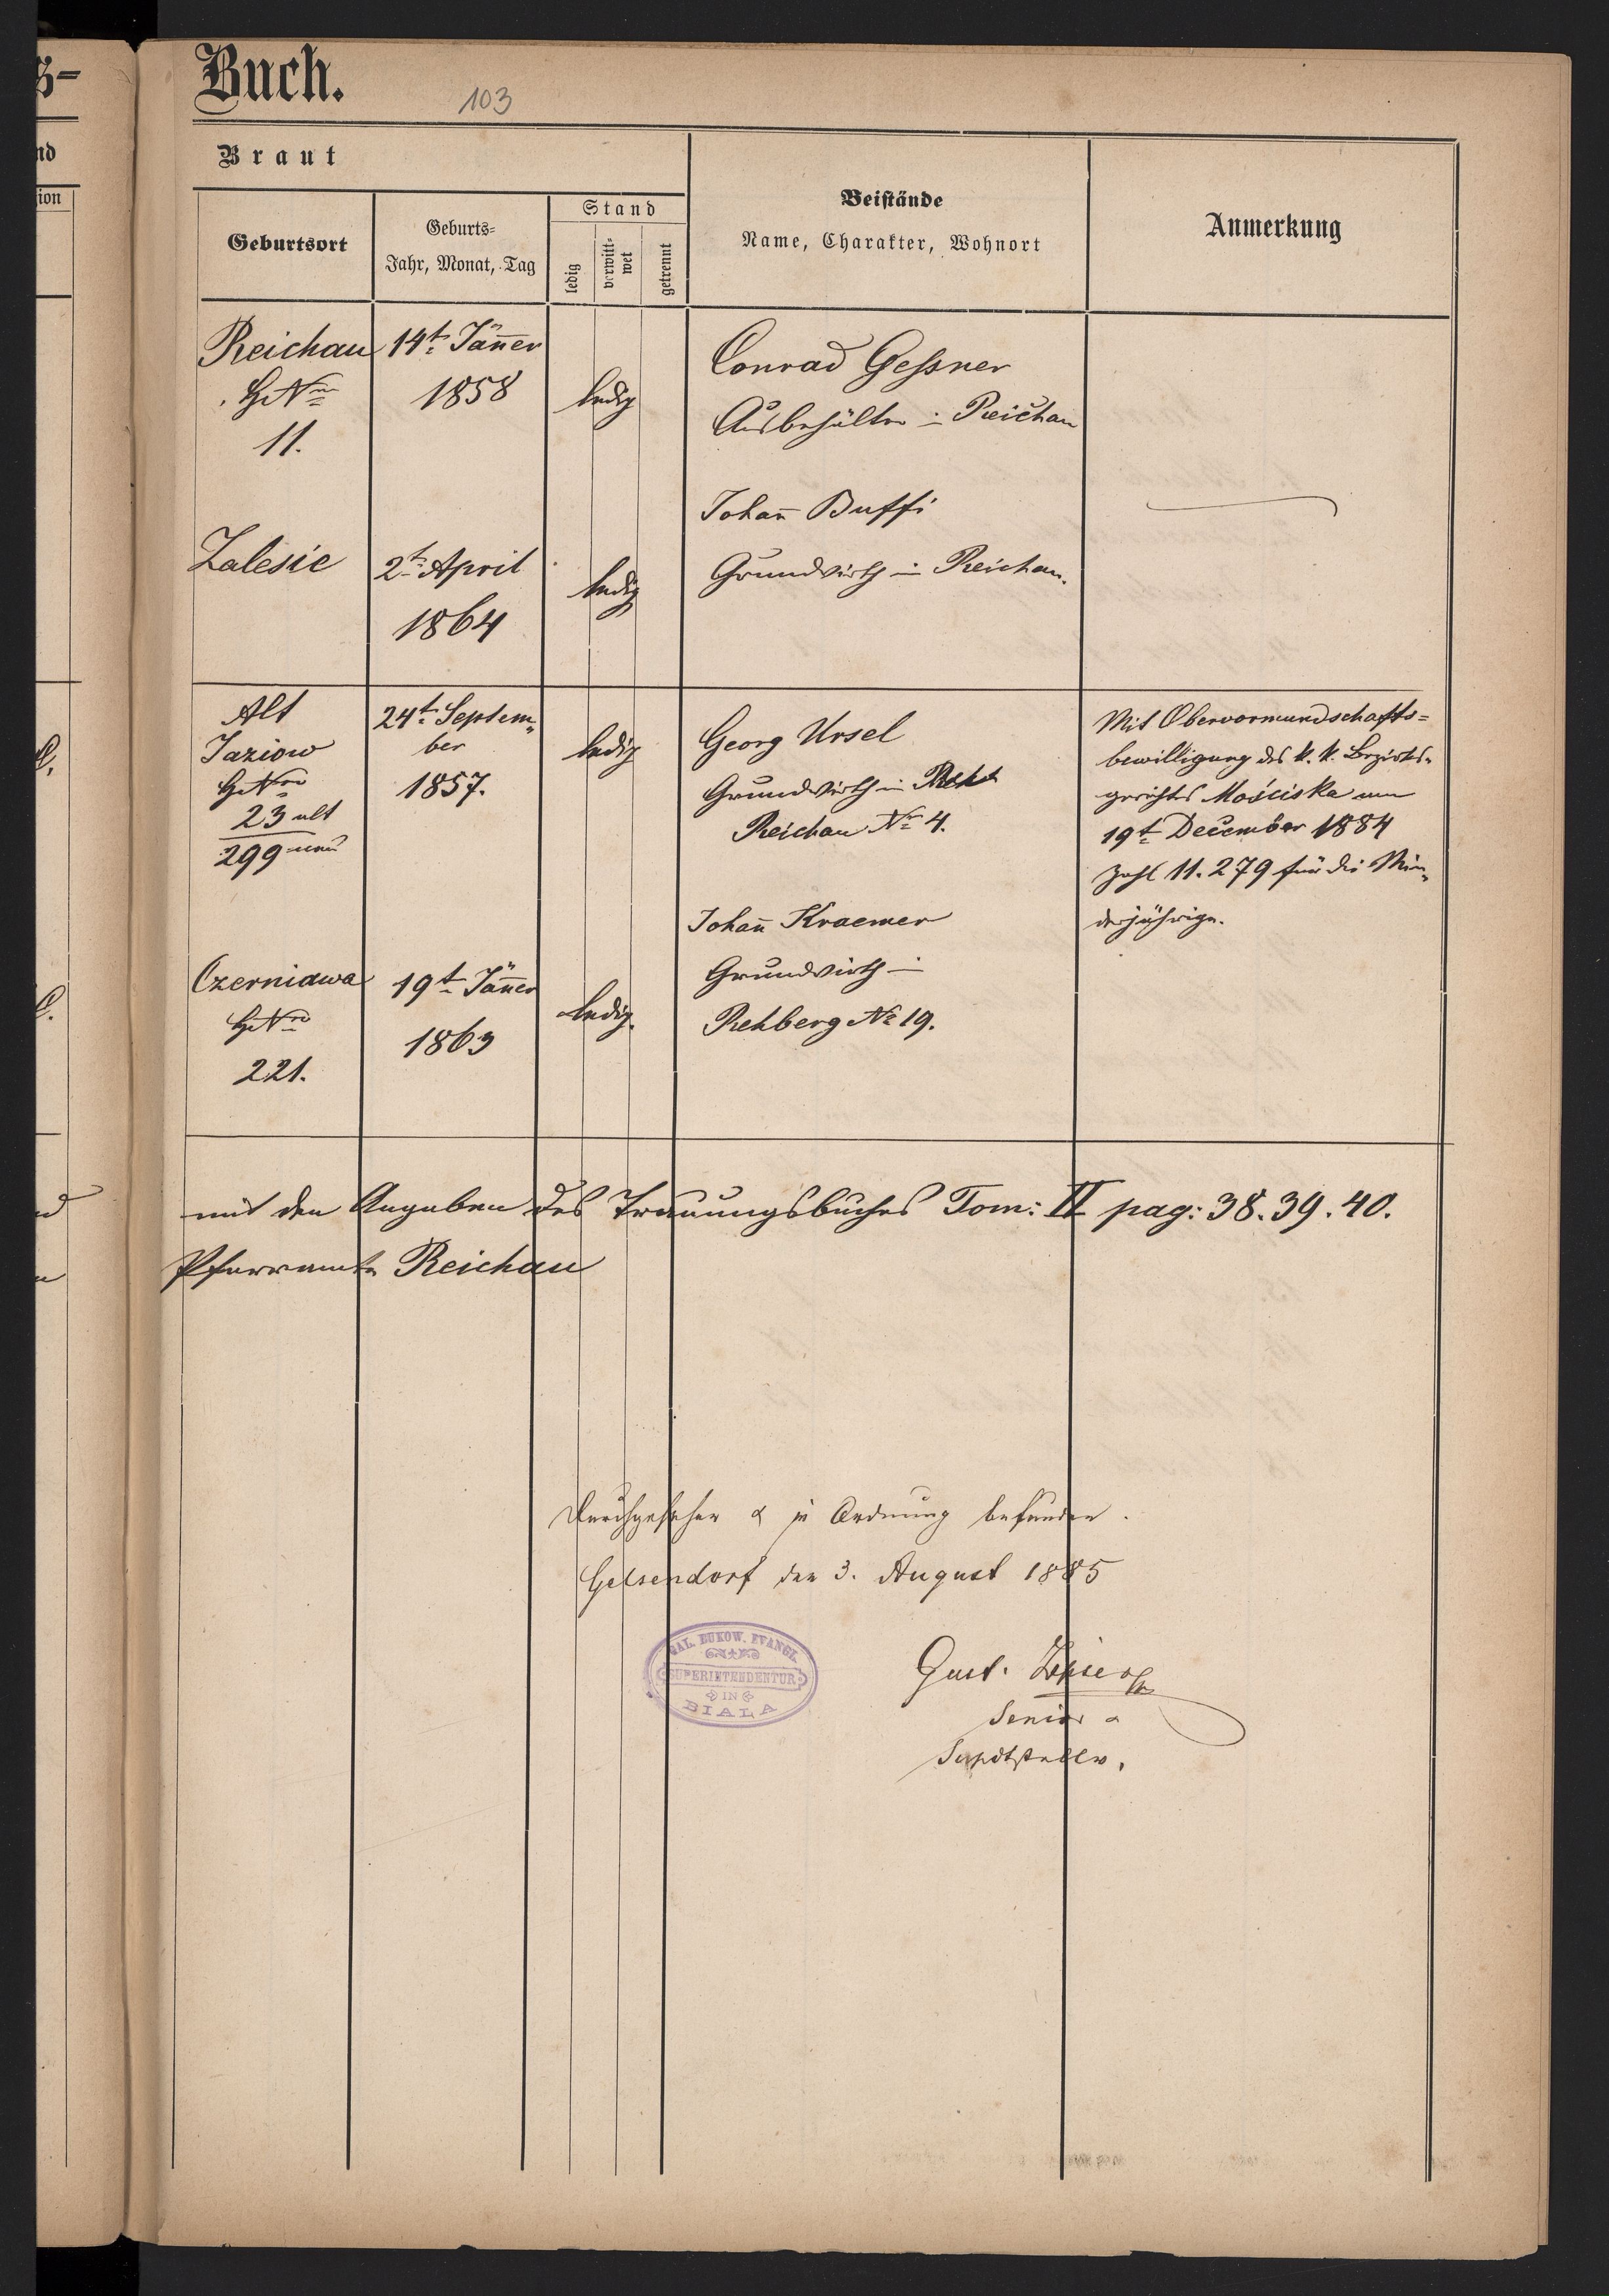 Buch.
103
Braut
Geburtsort
Geburts-
Jahr, Monat, Tag
Stand
ledig
verwitt-
wet
getrennt
Beistände
Name, Charakter, Wohnort
Anmerkung
Reichau
HNro
11.
14t Jänner
1858
ledig
Conrad Gessner
Ausbehälter in Reichau
Johañ Buffi
Grundwirth in Reichau.
Zalesie
2t April
1864
ledig
Alt
Jaziow
HNro
23 alt
299 neu
24t Septem„
ber
1857.
ledig
Georg Ursel
Grundwirth in
Reichau No 4.
Johañ Kraemer
Grundwirth in
Rehberg No 19.
Mit Obervormundschafts=
bewilligung des k. k. Bezirks-
gerichts Mościska vom
19t December 1884
Zahl 11.279 für die Min„
derjährige.
Czerniawa
HNro
221.
19t Jänner
1863
ledig.
mit den Angaben des Trauungsbuches Tom: II pag: 38. 39. 40.
Pfarramte Reichau
Durchgesehen & in Ordnung befunden.
Gelsendorf den 3. August 1885
GAL. BUKOW. EVANGL.
SUPERINTENDENTUR
IN
BIALA
Gust.
Senior &